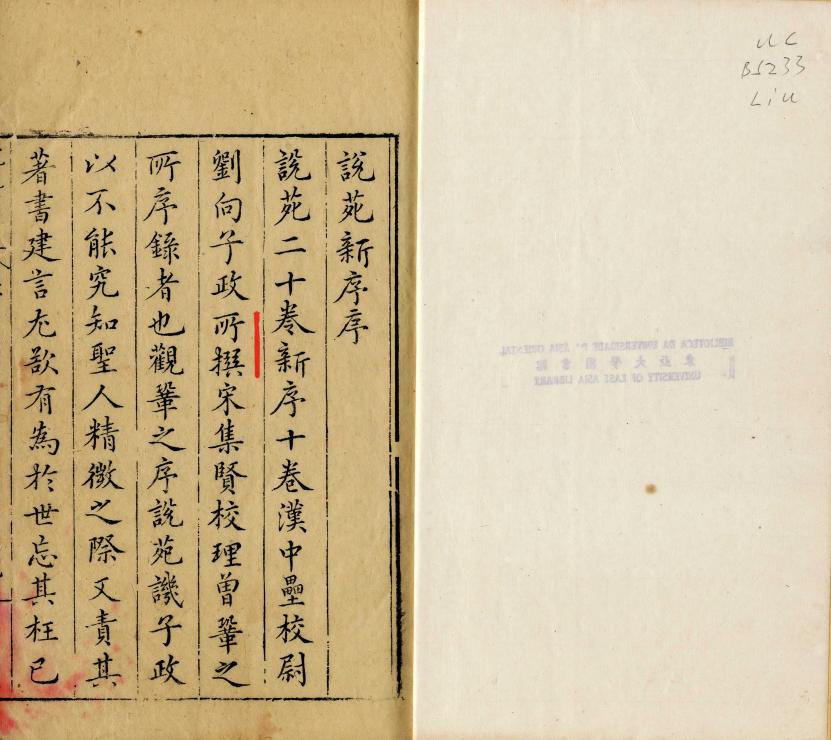 說苑新序序
說苑二十卷新序十卷漢中壘校尉
劉向子政所撰宋集賢校理曾鞏之
所序錄者也觀鞏之序說苑譏子政
以不能究知聖人精微之際又責其
著書建言尤欲有為於世忘其枉己
UC
B5233
Liu
BIBLIOTECA DA UNIVERSIDADE DA ÁSIA ORIENTAL
東亞大學圖書館
UNIVERSITY OF EAST ASIA LIBRARY